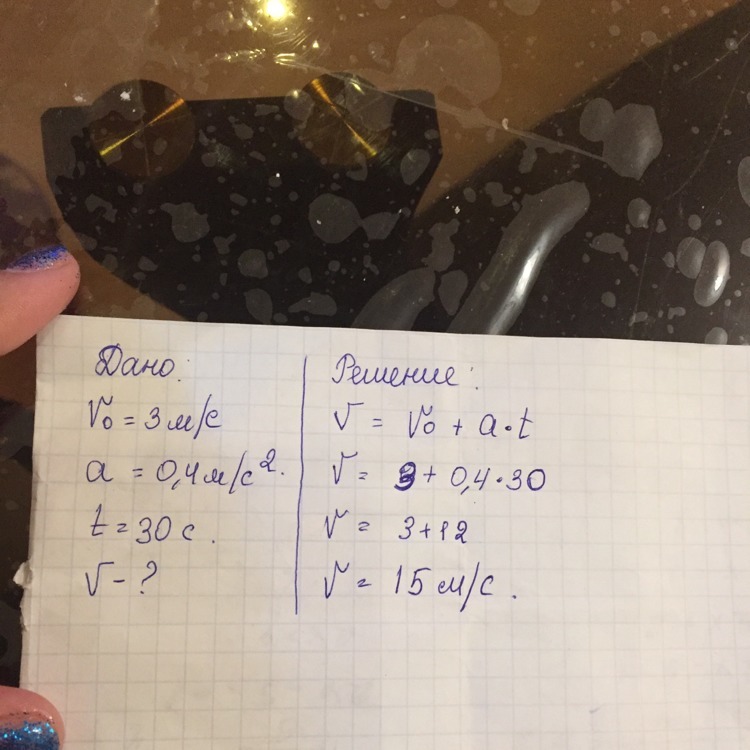 Дано:
v₀ = 3 м/с
a = 0,4 м/с².
t = 30 с.
v - ?
Решение:
v = v₀ + a·t
v = 3 + 0,4·30
v = 3+12
v = 15 м/с.